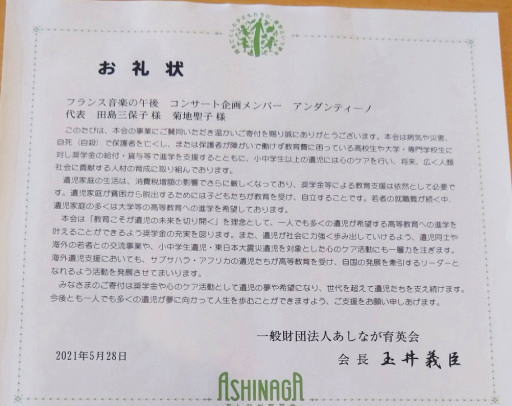 お礼状
フランス音楽の午後 コンサート企画メンバー アンダンティーノ
代表 田島三保子様 菊地聖子様
このたびは、本会の事業にご賛同いただき温かいご寄付を賜り誠にありがとうございます。本会は病気や災害、
自死（自殺）で保護者を亡くし、または保護者が障がいで働けず教育費に困っている高校生や大学・専門学校生に
対し奨学金の給付・貸与等で進学を支援するとともに、小中学生以上の遺児には心のケアを行い、将来、広く人類
社会に貢献する人材の育成に取り組んでおります。
遺児家庭の生活は、消費税増額の影響でさらに厳しくなっており、奨学金等による教育支援は依然として必要で
す。遺児家庭が貧困から脱出するためには子どもたちが教育を受け、自立することです。若者の就職難が続く中、
遺児家庭の多くは大学等の高等教育への進学を希望しております。
本会は「教育こそが遺児の未来を切り開く」を理念として、一人でも多くの遺児が希望する高等教育への進学を
叶えることができるよう奨学金の充実を図ります。また、遺児が社会に力強く歩み出していけるよう、遺児同士や
海外の若者との交流事業や、小中学生遺児・東日本大震災遺児を対象とした心のケア活動にも一層力を注ぎます。
海外遺児支援においても、サブサハラ・アフリカの遺児たちが高等教育を受け、自国の発展を牽引するリーダーと
なれるよう活動を発展させてまいります。
みなさまのご寄付は奨学金や心のケア活動として遺児の夢や希望になり、世代を超えて遺児たちを支え続けます。
今後とも一人でも多くの遺児が夢に向かって人生を歩むことができますよう、ご支援をお願い申しあげます。
一般財団法人あしなが育英会
2021年5月28日 会長 玉井義臣
ASHINAGA